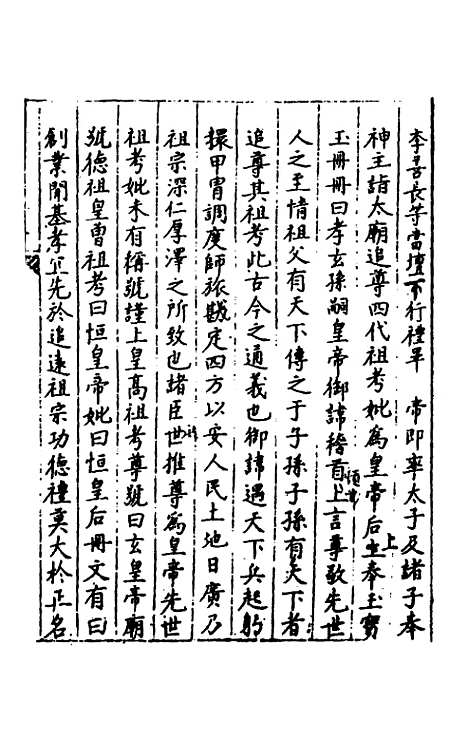 李善長等當壇下行禮畢　帝即率太子及諸子奉
神主詣太廟追尊四代祖考妣爲皇帝后上奉玉寳
玉冊冊曰孝玄孫嗣皇帝御諱稽首頓首上言尊敬先世
人之至情祖父有天下傳之于子孫子孫有天下者
追尊其祖考此古今之通義也御諱遇天下兵起躬
擐甲冑調度師旅戡定四方以安人民土地日廣乃
祖宗深仁厚澤之所致也諸臣世推尊爲皇帝先世
祖考妣未有稱號謹上皇高祖考尊號曰玄皇帝廟
號德祖皇曾祖考曰恒皇帝妣曰恒皇后冊文有曰
創業開基孝必先於追遠祖宗功德禮莫大於正名